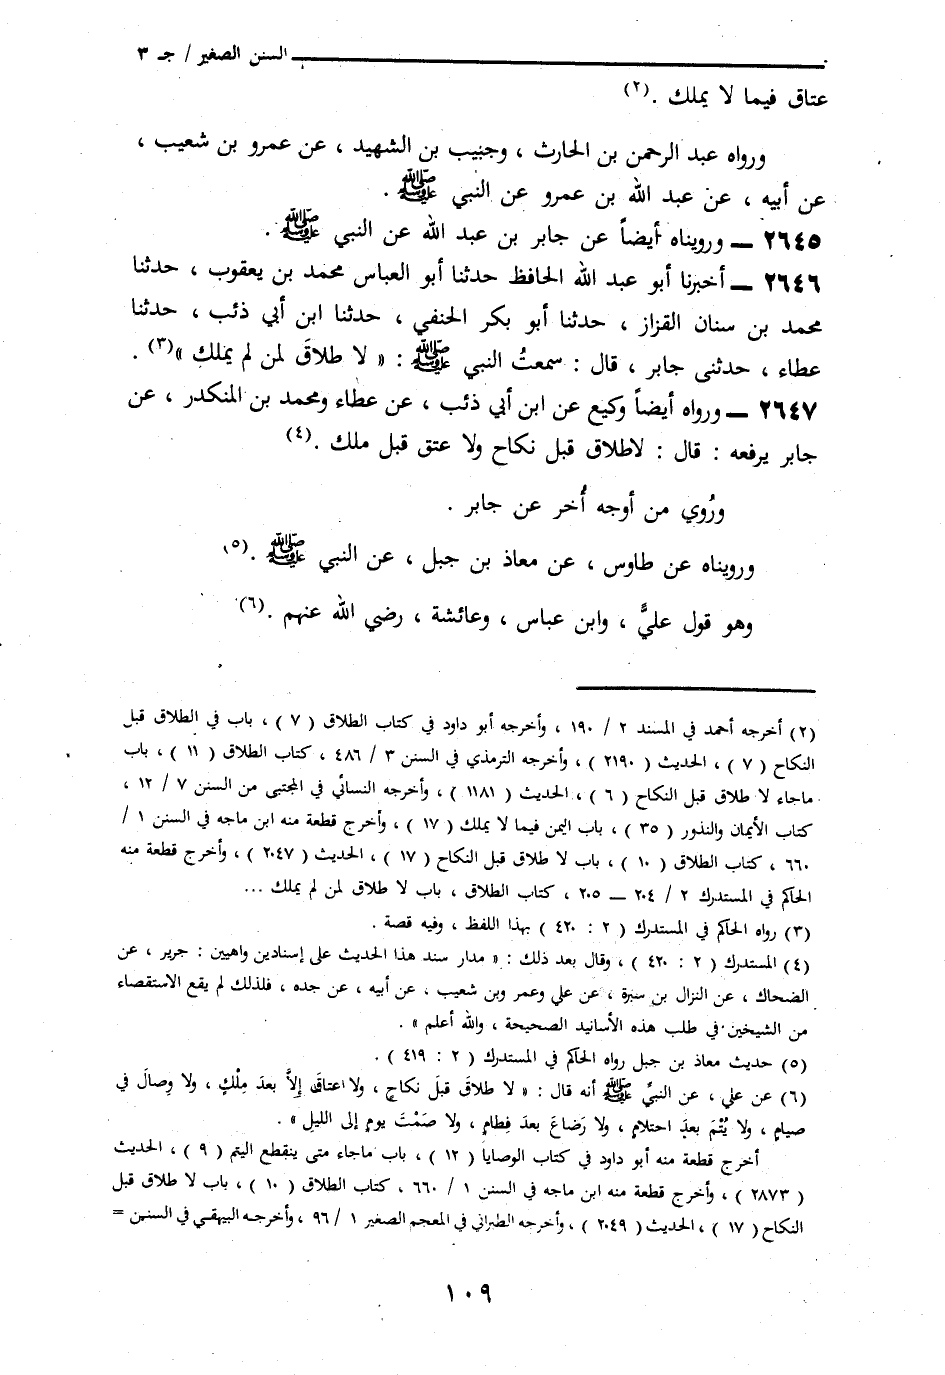 السنن الصغير / جـ ٣
عتاق فيما لا يملك .(٢)
ورواه عبد الرحمن بن الحارث ، وجنيب بن الشهيد ، عن عمرو بن شعيب ،
عن أبيه ، عن عبد الله بن عمرو عن النبي ﷺ .
٢٦٤٥ ــ ورويناه أيضاً عن جابر بن عبد الله عن النبي ﷺ .
٢٦٤٦ ــ أخبرنا أبو عبد الله الحافظ حدثنا أبو العباس محمد بن يعقوب ، حدثنا
محمد بن سنان القزاز ، حدثنا أبو بكر الحنفي ، حدثنا ابن أبي ذئب ، حدثنا
عطاء ، حدثنى جابر ، قال : سمعتُ النبي ﷺ : « لا طلاقَ لمن لم يملك »(٣) .
٢٦٤٧ ــ ورواه أيضاً وكيع عن ابن أبي ذئب ، عن عطاء ومحمد بن المنكدر ، عن
جابر يرفعه : قال : لاطلاق قبل نكاح ولا عتق قبل ملك .(٤)
ورُوي من أوجه أُخر عن جابر .
ورويناه عن طاوس ، عن معاذ بن جبل ، عن النبي ﷺ .(٥)
وهو قول عليٍّ ، وابن عباس ، وعائشة ، رضي الله عنهم .(٦)
(٢) أخرجه أحمد في المسند ٢ / ١٩٠ ، وأخرجه أبو داود في كتاب الطلاق ( ٧ ) ، باب في الطلاق قبل
النكاح ( ٧ ) ، الحديث ( ٢١٩٠ ) ، وأخرجه الترمذي في السنن ٣ / ٤٨٦ ، كتاب الطلاق ( ١١ ) ، باب
ماجاء لا طلاق قبل النكاح ( ٦ ) ، الحديث ( ١١٨١ ) ، وأخرجه النسائي في المجتبى من السنن ٧ / ١٢ ،
كتاب الأيمان والنذور ( ٣٥ ) ، باب اليمن فيما لا يملك ( ١٧ ) ، وأخرج قطعة منه ابن ماجه في السنن ١ /
٦٦٠ ، كتاب الطلاق ( ١٠ ) ، باب لا طلاق قبل النكاح ( ١٧ ) ، الحديث ( ٢٠٤٧ ) ، وأخرج قطعة منه
الحاكم في المستدرك ٢ / ٢٠٤ ــ ٢٠٥ ، كتاب الطلاق ، باب لا طلاق لمن لم يملك ...
(٣) رواه الحاكم في المستدرك ( ٢ : ٤٢٠ ) بهذا اللفظ ، وفيه قصة .
(٤) المستدرك ( ٢ : ٤٢٠ ) ، وقال بعد ذلك : « مدار سند هذا الحديث على إسنادين واهيين : جرير ، عن
الضحاك ، عن النزال بن سبرة ، عن علي وعمر وبن شعيب ، عن أبيه ، عن جده ، فلذلك لم يقع الاستقصاء
من الشيخين في طلب هذه الأسانيد الصحيحة ، والله أعلم » .
(٥) حديث معاذ بن جبل رواه الحاكم في المستدرك ( ٢ : ٤١٩ ) .
(٦) عن علي ، عن النبيِّ ﷺ أنه قال : « لا طلاقَ قبلَ نكاحٍ ، ولا اعتاقَ إلاَّ بعدَ مِلْكٍ ، ولا وِصالَ في
صيامٍ ، ولا يُتْمَ بعدِ احتلامٍ ، ولا رَضاعَ بعدَ فِطامٍ ، ولا صَمْتَ يومٍ إلى الليلِ » .
أخرج قطعة منه أبو داود في كتاب الوصايا ( ١٢ ) ، باب ماجاء متى ينقطع اليتم ( ٩ ) ، الحديث
( ٢٨٧٣ ) ، وأخرج قطعة منه ابن ماجه في السنن ١ / ٦٦٠ ، كتاب الطلاق ( ١٠ ) ، باب لا طلاق قبل
النكاح ( ١٧ ) ، الحديث ( ٢٠٤٩ ) ، وأخرجه الطبراني في المعجم الصغير ١ / ٩٦ ، وأخرجه البيهقي في السنن =
١٠٩